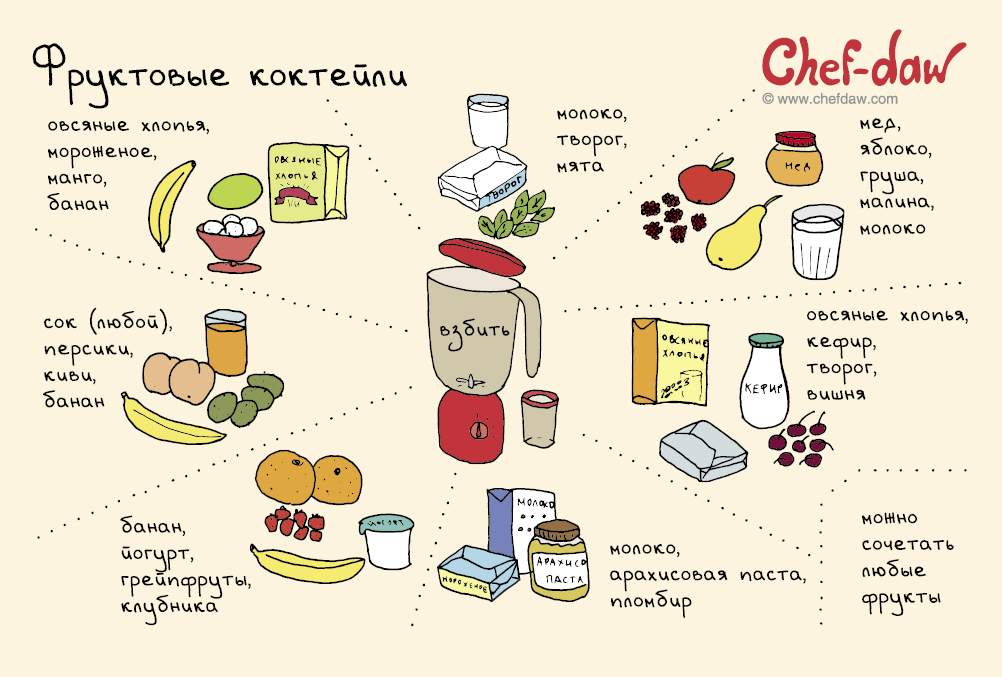 Фруктовые коктейли
Chef-daw
© www.chefdaw.com
овсяные хлопья,
мороженое,
манго,
банан
ОВСЯНЫЕ
ХЛОПЬЯ
молоко,
творог,
мята
ТВОРОГ
мед,
яблоко,
груша,
малина,
молоко
мед
сок (любой),
персики,
киви,
банан
взбить
овсяные хлопья,
кефир,
творог,
вишня
ОВСЯНЫЕ
ХЛОПЬЯ
КЕФИР
банан,
йогурт,
грейпфруты,
клубника
йогурт
МОЛОКО
МОРОЖЕНОЕ
АРАХИСО
ПАСТА
молоко,
арахисовая паста,
пломбир
можно
сочетать
любые
фрукты